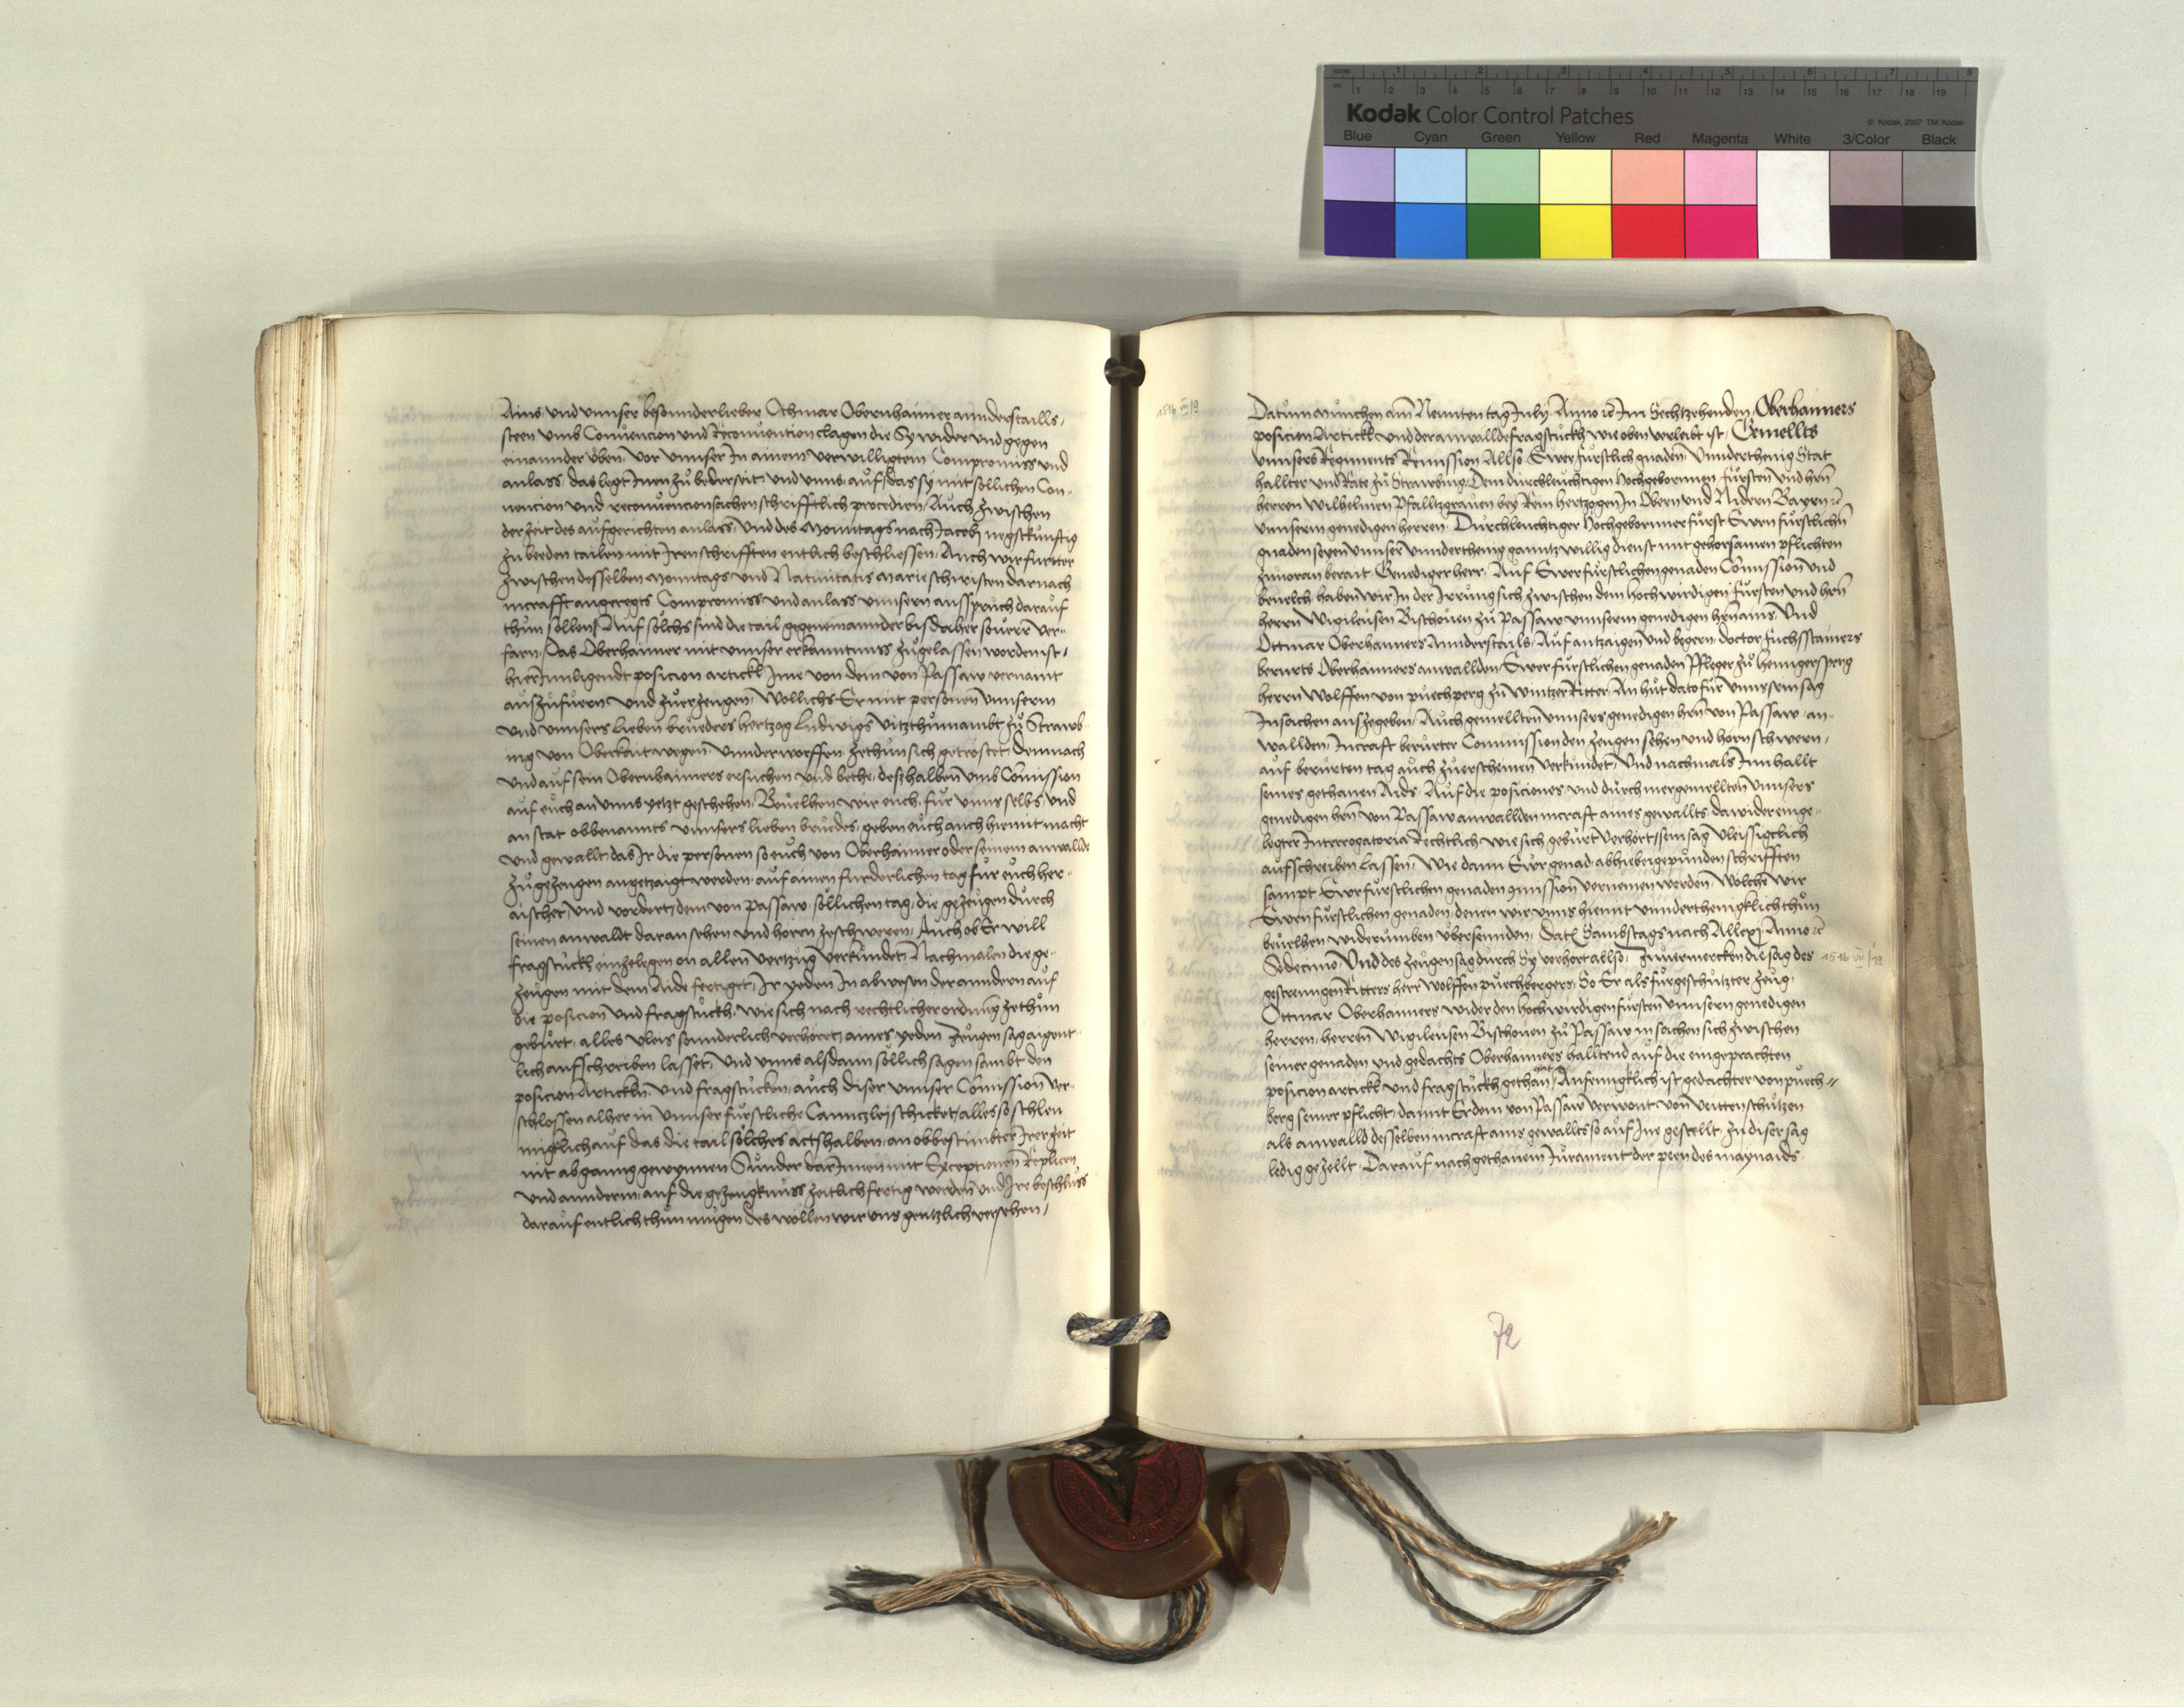 Ains und unnser besonnderlieber Othmar Obernhaimer annderstaills,
steen umb Conuencion und Reconuention clagen die Sy wider und gegen
einannder üben, vor unnser in ainem verwilligtem Compromiss und
anlass das legt Inen zu bederseit, und unns, auf das sy mit sollichen Con-
uencion und reconuencion sachen schrifftlich procedirn, Auch zwischen
der zeit des aufgerichten anlass, und des Monntags nach Jacobj negstkunftig
zu beden tailen mit Iren schrifften entlich beschliessen, Auch wir furtter
zwischen desselben Monntags und Natiuitatis Marie schiristen darnach
incrafft angeregts Compromiss und anlass unnsern ausspruch darauf
thun sollen, Auf solchs sind die tail gegeneinannder bis daher souerr ver-
farn, Das Oberhaimer mit unnser erkanntnuss zugelassen worden ist,
hierInnligendt posicion artickl Ime von dem von Passaw verneint
auszufuern und zuerzeugen, Wollichs Er mit personen unnserm
und unnsers lieben brueders hertzog Ludwigs vitzthumambt zu Strawb-
ing von Oberkait wegen, unnderworffen, zethun sich getröstet, Demnach
und auf sein Obernhaimers ersuchen und bethe, desshalben umb Comission
auf euch an unns yetzt geschehen, Beuelhen wir euch, für unns selbs, und
an stat obbenannts unnsers lieben bruders, geben euch auch hiemit macht
und gewallt das Ir die personen so euch von Oberhaimer oder seinem anwallde
zu gezeugen angetzaigt werden, auf ainen furderlichen tag für euch her-
aischet, und vordert, dem von Passaw, sollichen tag, die gezeugen durch
seinen anwaldt daran sehen und hörn zeschweren, Auch ob Er will
fragstückh einzelegen on allen vertzug verkundet, Nachmalen die ge-
zeugen mit dem Aide fertiget, Ir yeden In abwesen der anndern auf
die posicion und fragstückh, wie sich nach rechtlicher ordnung zethun
gebürt, alles vleis sonnderlich verhöret, aines yeden zeugen sag aigent-
lich aufschreiben lasset, und unns alsdann sollich sagen sambt den
posicion Artickln, und fragstücken, auch diser unnser Comission ver-
schlossen alher in unnser fürstliche Canntzley schicket, alles so schleu-
nigklich auf das die tail solches acts halben, an obbestimbter Irer zeit
nit abganng gewynnen Sunder darInnen mit Exceptionen Replicen
und anndern, auf die gezeugknuss zeitlich fertig werden und Ire beschluss
darauf entlich thun mügen des wollen wir uns gentzlich versehen,
1516 VII/9
Datum München am Neunten tag July, Anno etc Im Sechtzehenden, Oberhaimers
posicion Artickl und der anwallde fragstückh wie oben verleibt ist, Gemellts
unnsers Regiments Remission Also, Ewer fürstlich gnaden unnderthenig Stat
hallter und Räte zu Strawbing, Dem durchleuchtigen hochgebornnen fürsten und hern
herren Wilhelmen Pfalltzgrauen bey Rein hertzogen In Obern und Nidern Bayrn etc
unnserm genedigen herren, Durchleuchtiger hochgebornner fürst Ewrn fürstlichn
gnaden seyen unnser unnderthenig ganntz willig dienst mit gehorsamen pflichten
zuuoran berait Genediger herr, Auf Ewer fürstlichen genaden Comission und
beuelch haben wir In der Irrung sich zwischen dem hochwirdigen fürsten und hern
herrn Wigileusen Bischouen zu Passaw unnserm genedigen hern ains, Und
Ottmar Oberhaimers Annderstails, Auf antzaigen und begern, doctor fuchsstainers
berürts Oberhaimers anwallden, Ewer fürstlichen genaden Pfleger zu hennigersperg
herrn Wolffen von puechperg zu wintzer Ritter, An hüt dato für unns sein sag
In sachen auszegeben, Auch gemellten unnsers genedigen hern von Passaw, an-
wallden, Incraft berürter Commission den zeugen sehen und hörn schwern,
auf berürten tag auch zuerscheinen verkündet, Und nachmals Innhallt
seines gethanen Aids, Auf die posiciones, und durch mergemellten unnsers
genedigen hern von Passaw anwallden incraft aines gewallts, dawider einge-
legter Interrogatoria Rechtlich wie sich gebürt verhört, sein sag vleissigclich
aufschreiben lassen, Wie dann Ewr genad, ab hiebeigepunden schrifften
sampt Ewr fürstlichen genaden comission vernemen werden, Wolche wir
Ewrn fürstlichen genaden, denen wir unns hiemit unnderthenigklich thun
beuelhen widerumben übersennden, Dat Sambstags nach Allexj Anno etc
Sedecimo, Und des zeugen sag durch Sy verhört allso, Zuuermercken die sag des 1516 VII/19
gestrenngen Ritters herr Wolffen puechbergers, So Er als fürgeschutzter zeug,
Ottmar Oberhaimers wider den hochwirdigen fürsten unnsern genedigen
herren, herren Wigileusen Bischouen zu Passaw in sachen sich zwischen
seiner genaden und gedachts Oberhaimers halltend auf die eingeprachten
posicion artickl und fragstückh gethan hat, Anfenngklich ist gedachter von puech-
berg seiner pflicht, damit Er dem von Passaw verwont von veitten schützen
als anwalld desselben incraft ains gewallts so auf Ine gestellt, zu diser sag
ledig gezellt, Darauf nach gethanem Jurament der peen des maynaids
72